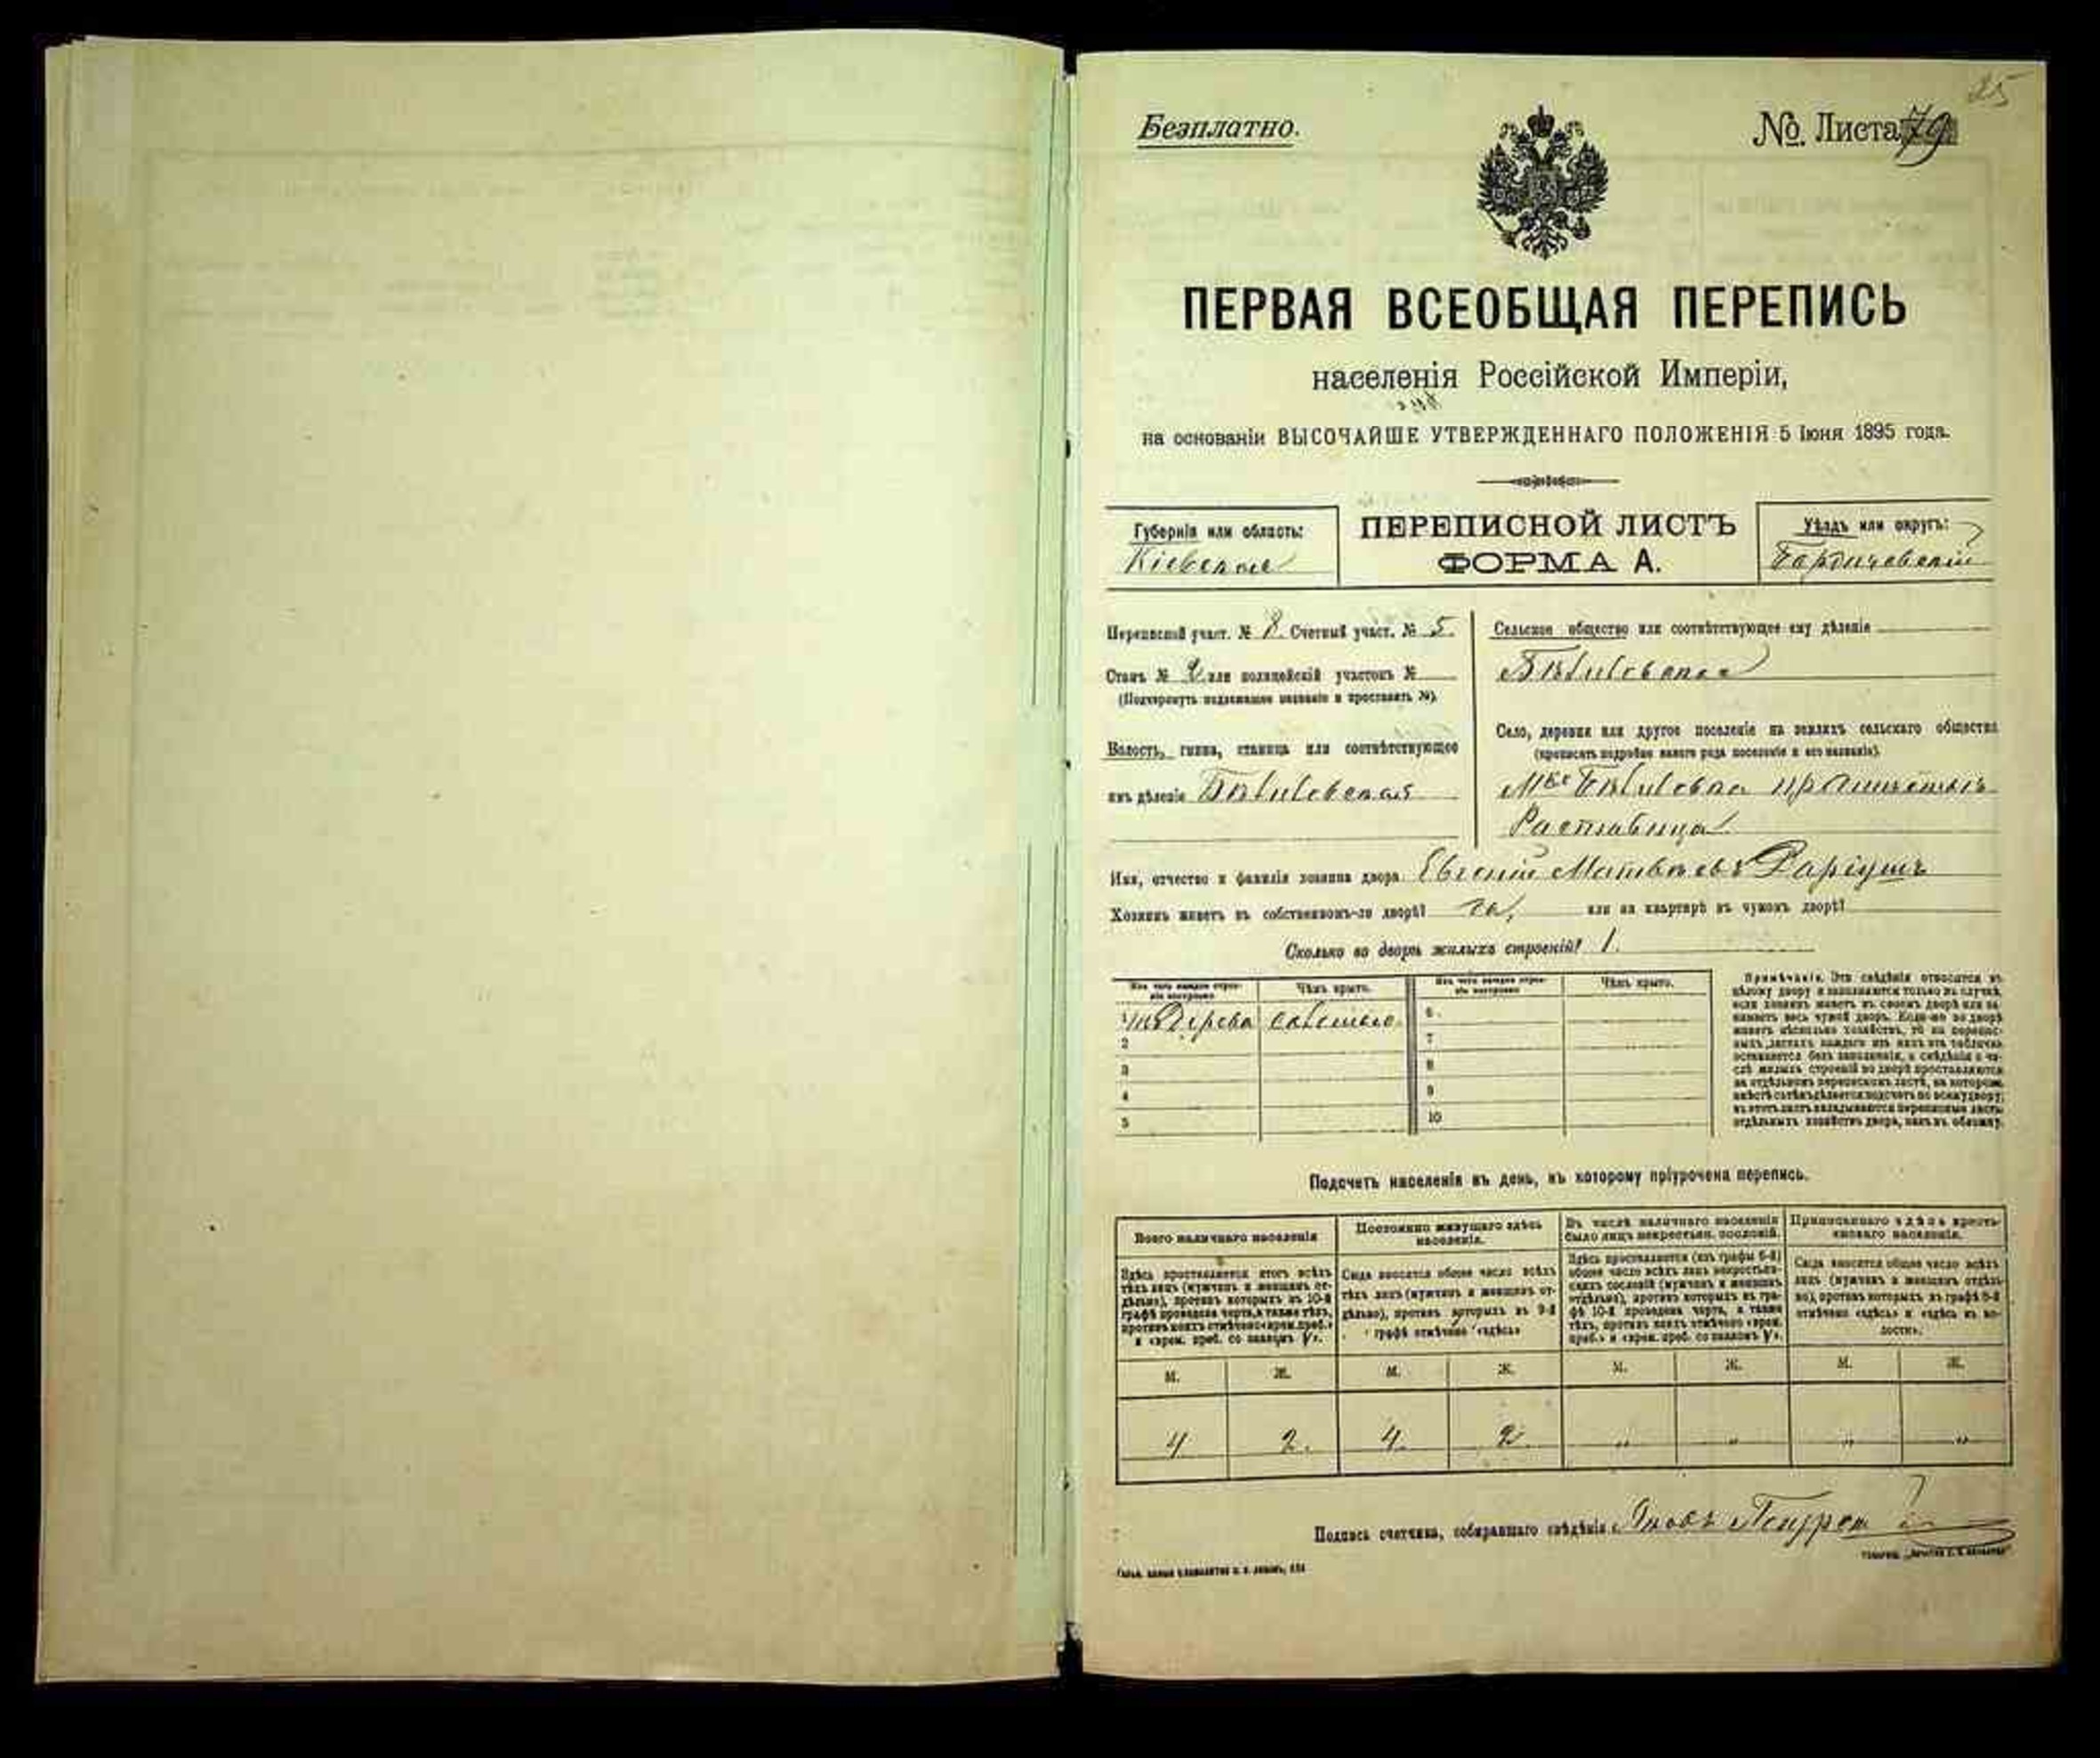 25
Безплатно.
№ Листа 79
ПЕРВАЯ ВСЕОБЩАЯ ПЕРЕПИСЬ
населенія Россійской Имперіи,
на основаніи ВЫСОЧАЙШЕ УТВЕРЖДЕННАГО ПОЛОЖЕНІЯ 5 Іюня 1895 года.
Губернія или область:
Кіевская
ПЕРЕПИСНОЙ ЛИСТЪ
ФОРМА А.
Уѣздъ или округъ:
Бердичевскій
Переписной участ. № 8. Счетный участ. № 5.
Станъ № 2 или полицейскій участокъ №
(Подчеркнуть подлежащее названіе и проставить №).
Волость, гмина, станица или соотвѣтствующее
имъ дѣленіе Бѣлиловская
Сельское общество или соотвѣтствующее ему дѣленіе
Бѣлиловское
Село, деревня или другое поселеніе на земляхъ сельскаго общества
(прописать подробно какого рода поселеніе и его названіе).
Бѣлиловка при
Раставица
Имя, отчество и фамилія хозяина двора Евгеній Матвѣевъ
Хозяинъ живетъ въ собственномъ-ли дворѣ? да, или на квартирѣ въ чужомъ дворѣ?
Сколько во дворѣ жилыхъ строеній? 1.
Изъ чего каждое строеніе построено
Чѣмъ крыто.
Изъ чего каждое строеніе построено
Чѣмъ крыто.
1 изъ дерева соломою
2
3
4
5
6
7
8
9
10
Примѣчаніе. Эти свѣдѣнія относятся къ
цѣлому двору и заполняются только въ случаѣ,
если хозяинъ живетъ въ своемъ дворѣ или занимаетъ
весь чужой дворъ. Если-же во дворѣ
живетъ нѣсколько хозяйствъ, то на переписныхъ
листахъ каждаго изъ нихъ эта табличка
оставляется безъ заполненія, а свѣдѣнія о числѣ
жилыхъ строеній во дворѣ проставляются
на отдѣльномъ переписномъ листѣ, на которомъ
вмѣстѣ съ тѣмъ дѣлается подсчетъ по всему двору;
въ этотъ листъ вкладываются переписные листы
отдѣльныхъ хозяйствъ двора, какъ въ обложку.
Подсчетъ населенія въ день, къ которому пріурочена перепись.
Всего наличнаго населенія
Постоянно живущаго здѣсь населенія.
Въ числѣ наличнаго населенія было лицъ некрестьян. сословій.
Приписаннаго здѣсь крестьянскаго населенія.
Здѣсь проставляется итогъ всѣхъ
тѣхъ лицъ (мужчинъ и женщинъ отдѣльно),
противъ которыхъ въ 10-й
графѣ проведена черта, а также тѣхъ,
противъ коихъ отмѣчено «врем. преб.»
и «врем. преб. со знакомъ V».
Сюда вносится общее число всѣхъ
тѣхъ лицъ (мужчинъ и женщинъ отдѣльно),
противъ которыхъ въ 9-й
графѣ отмѣчено «здѣсь»
Здѣсь проставляется (изъ графы 6-й)
общее число всѣхъ лицъ некрестьянскихъ
сословій (мужчинъ и женщинъ
отдѣльно), противъ которыхъ въ графѣ
10-й проведена черта, а также
тѣхъ, противъ коихъ отмѣчено «врем.
преб.» и «врем. преб. со знакомъ V».
Сюда вносится общее число всѣхъ
лицъ (мужчинъ и женщинъ отдѣльно),
противъ которыхъ въ графѣ 8-й
отмѣчено «здѣсь» и «здѣсь въ волости».
М. Ж. М. Ж. М. Ж. М. Ж.
4 2. 4. 2 „ „ „ „
Подпись счетчика, собиравшаго свѣдѣнія Яковъ